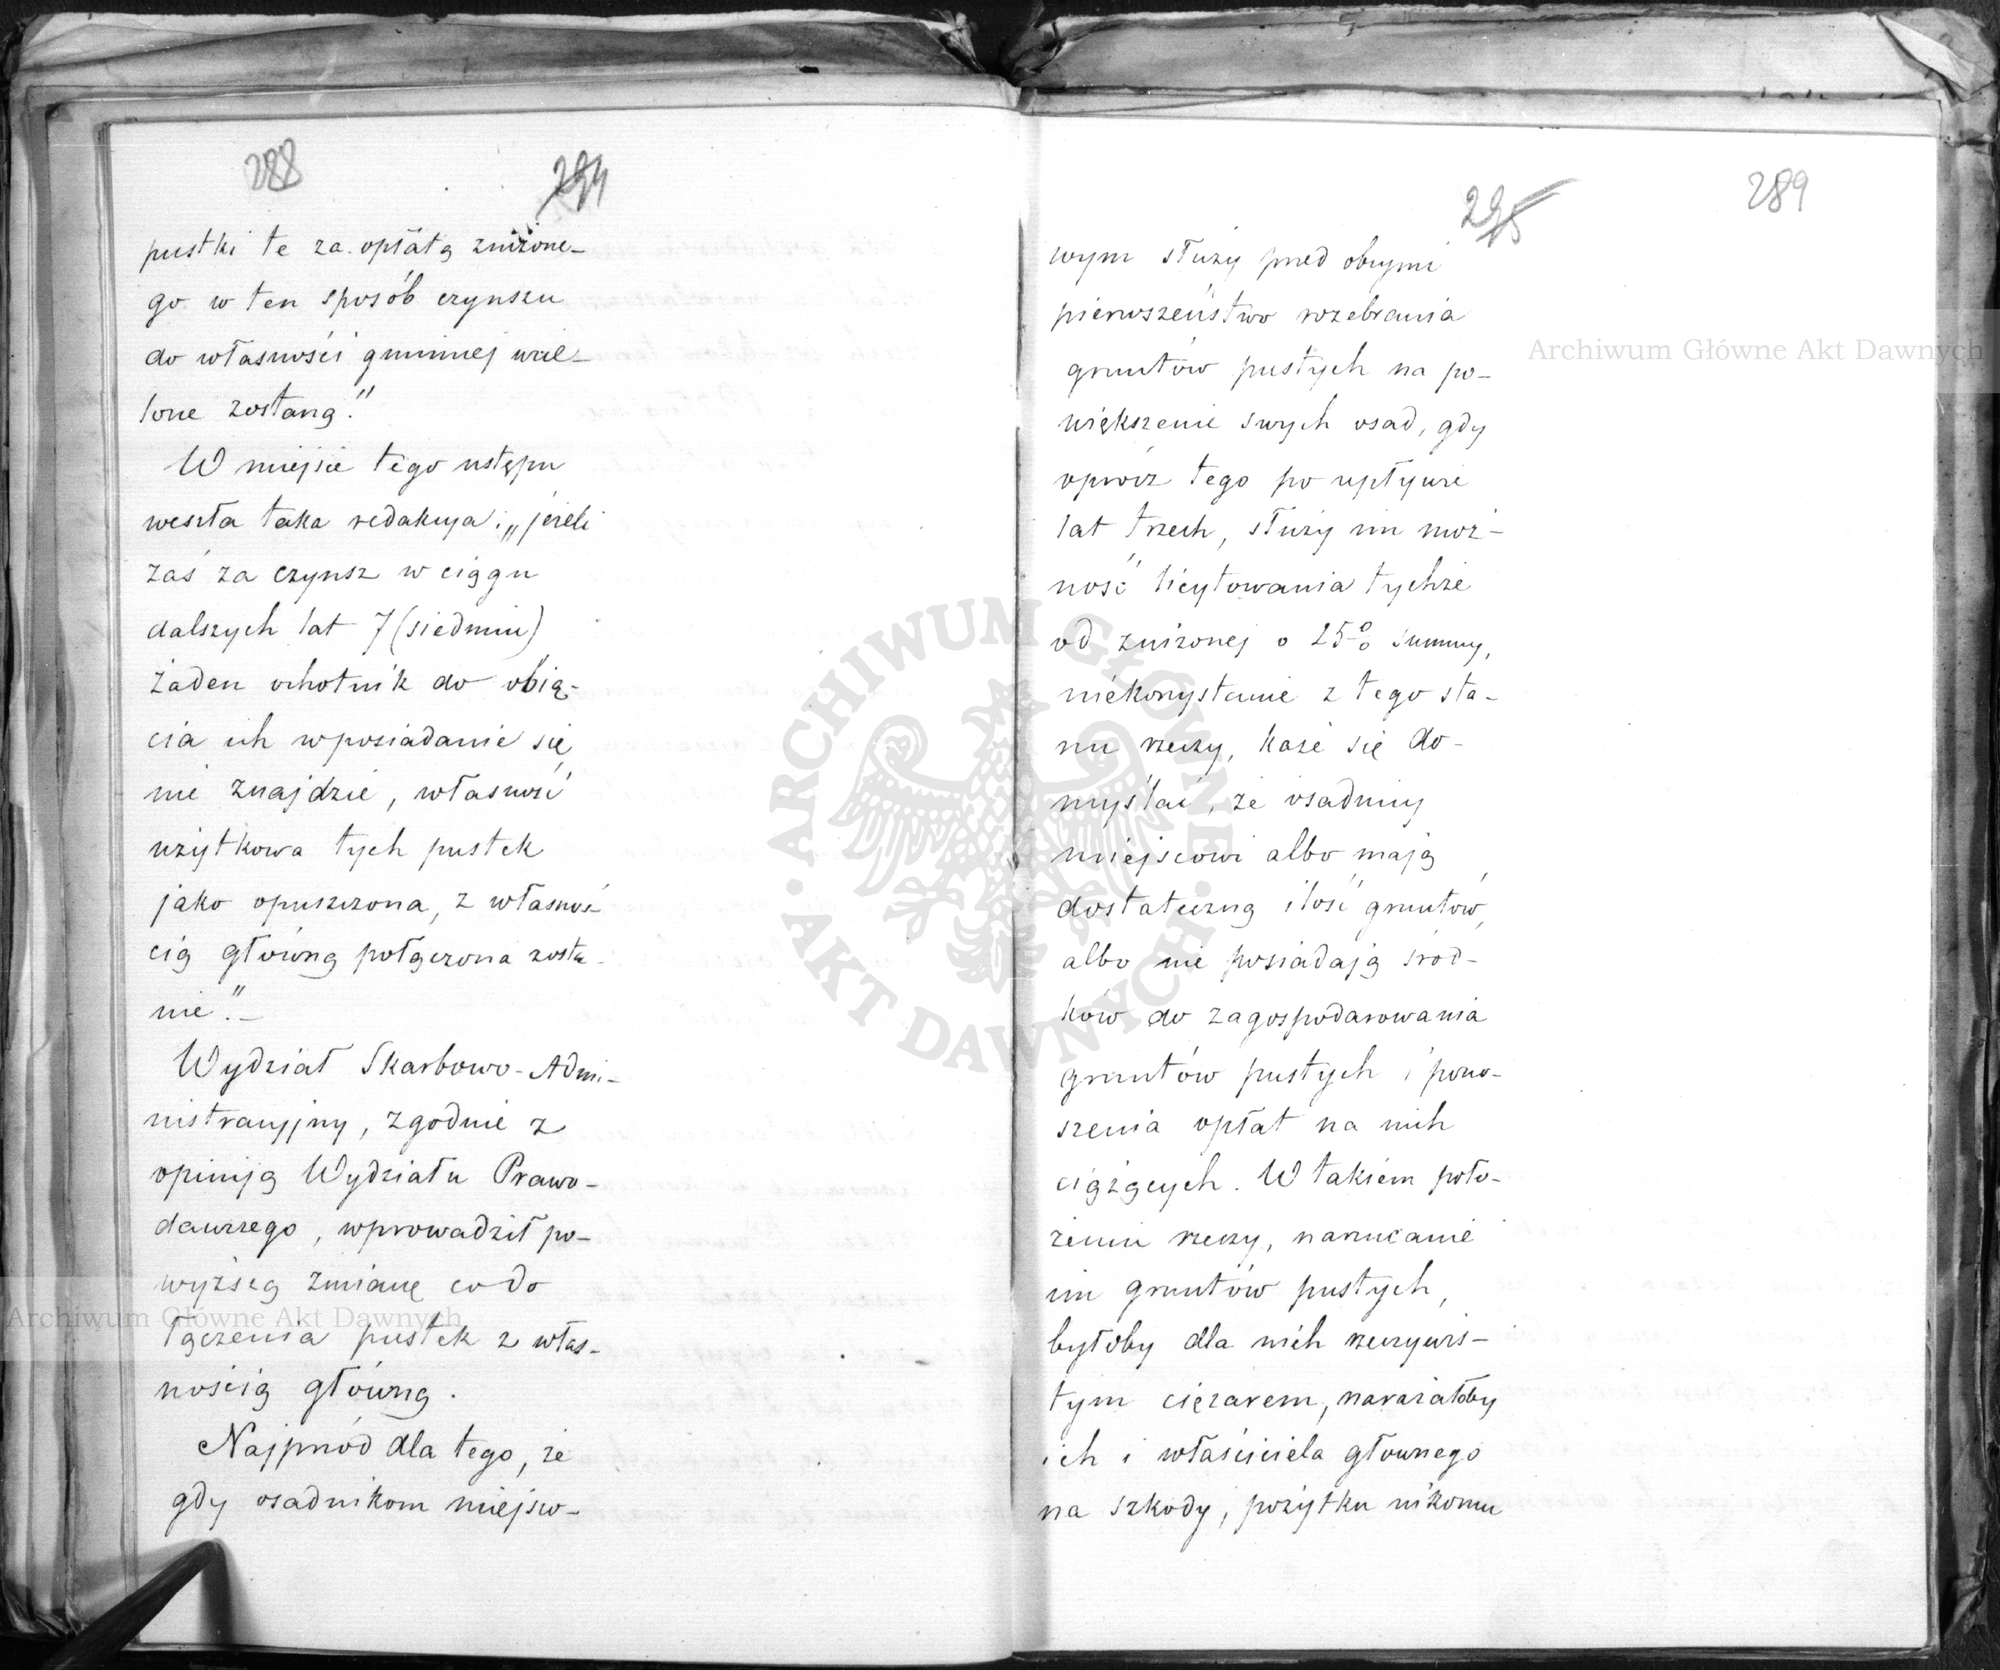 288 294
pustki te za opłatą zniżone-
go w ten sposób czynszu
do własności gminnej wcie-
lone zostaną."
W miejsce tego ustępu
weszła taka redakcya: „jeżeli
zaś za czynsz w ciągu
dalszych lat 7 (siedmiu)
żaden ochotnik do obję-
cia ich w posiadanie się
nie znajdzie, własność
użytkowa tych pustek
jako opuszczona, z własnoś-
cią główną połączona zosta-
nie".—
Wydział Skarbowo-Admi-
nistracyjny, zgodnie z
opiniją Wydziału Prawo-
dawczego, wprowadził po-
wyższą zmianę co do
łączenia pustek z włas-
nością główną.
Najprzód dla tego, że
gdy osadnikom miejsco-
295 289
wym służy przed obcymi
pierwszeństwo rozebrania
gruntów pustych na po-
większenie swych osad, gdy
oprócz tego po upływie
lat trzech, służy im moż-
ność licytowania tychże
od zniżonej o 25% summy,
niekorzystanie z tego sta-
nu rzeczy, każe się do-
myślać, że osadnicy
miejscowi albo mają
dostateczną ilość gruntów,
albo nie posiadają środ-
ków do zagospodarowania
gruntów pustych i pono-
szenia opłat na nich
ciążących. W takiem poło-
żeniu rzeczy, narzucanie
im gruntów pustych,
byłoby dla nich rzeczywis-
tym ciężarem, narażałoby
ich i właściciela głównego
na szkody, pożytku nikomu
Archiwum Główne Akt Dawnych
ARCHIWUM GŁÓWNE AKT DAWNYCH
Archiwum Główne Akt Dawnych